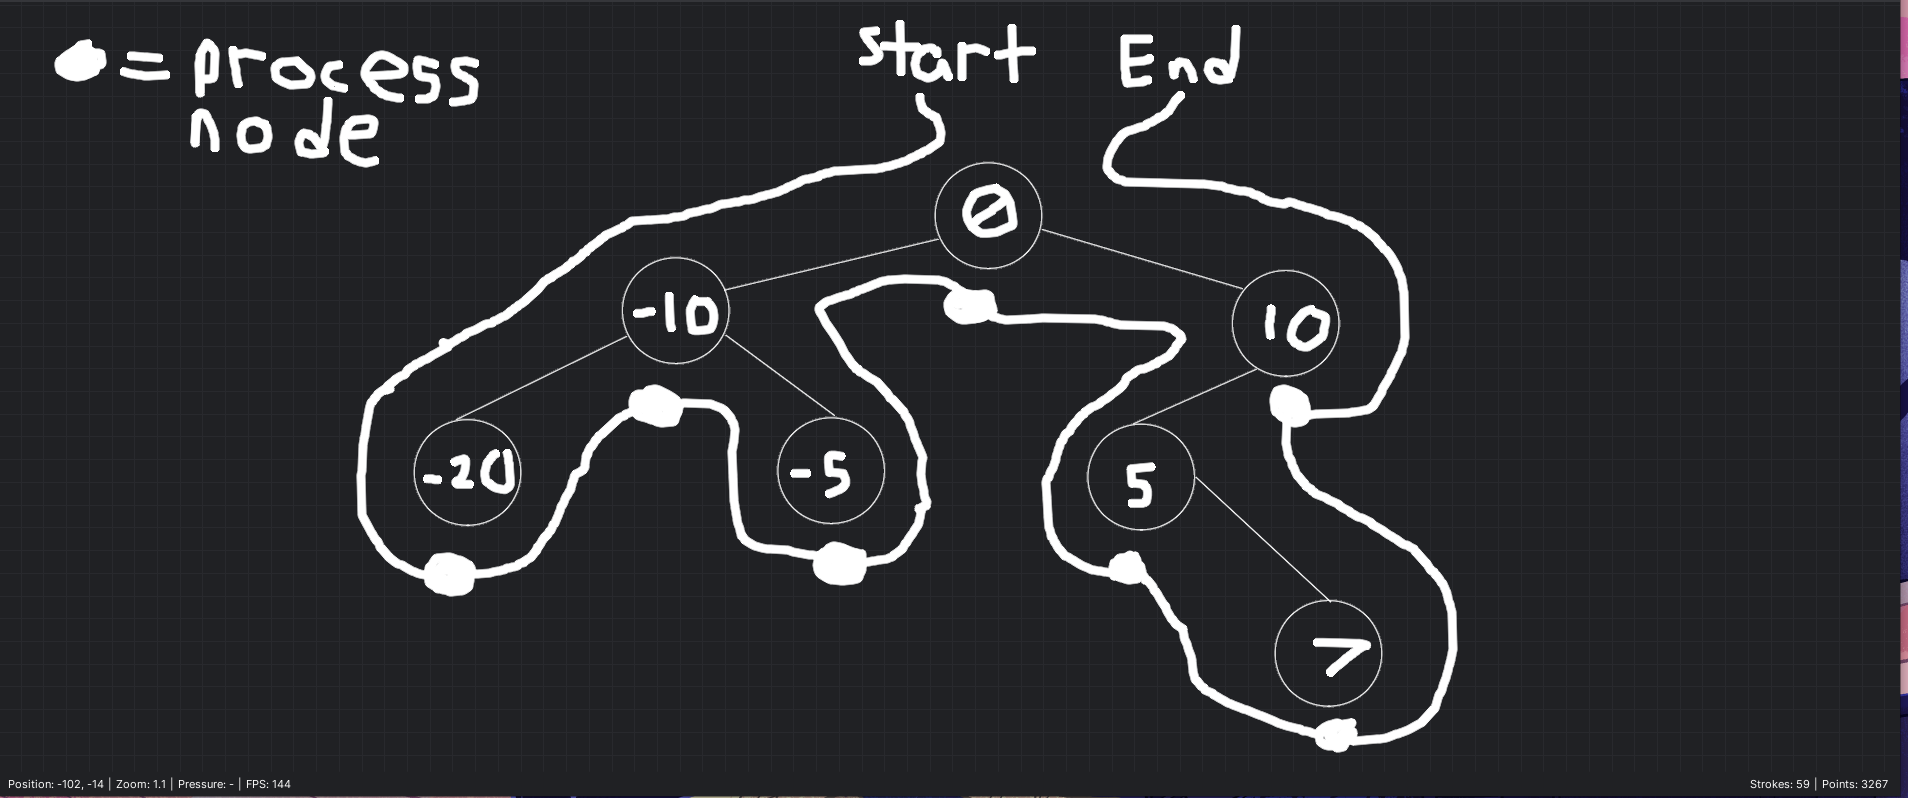 start End
= process
node
0
-10
10
-20
-5
5
7
Position: -102, -14 | Zoom: 1.1 | Pressure: - | FPS: 144
Strokes: 59 | Points: 3267